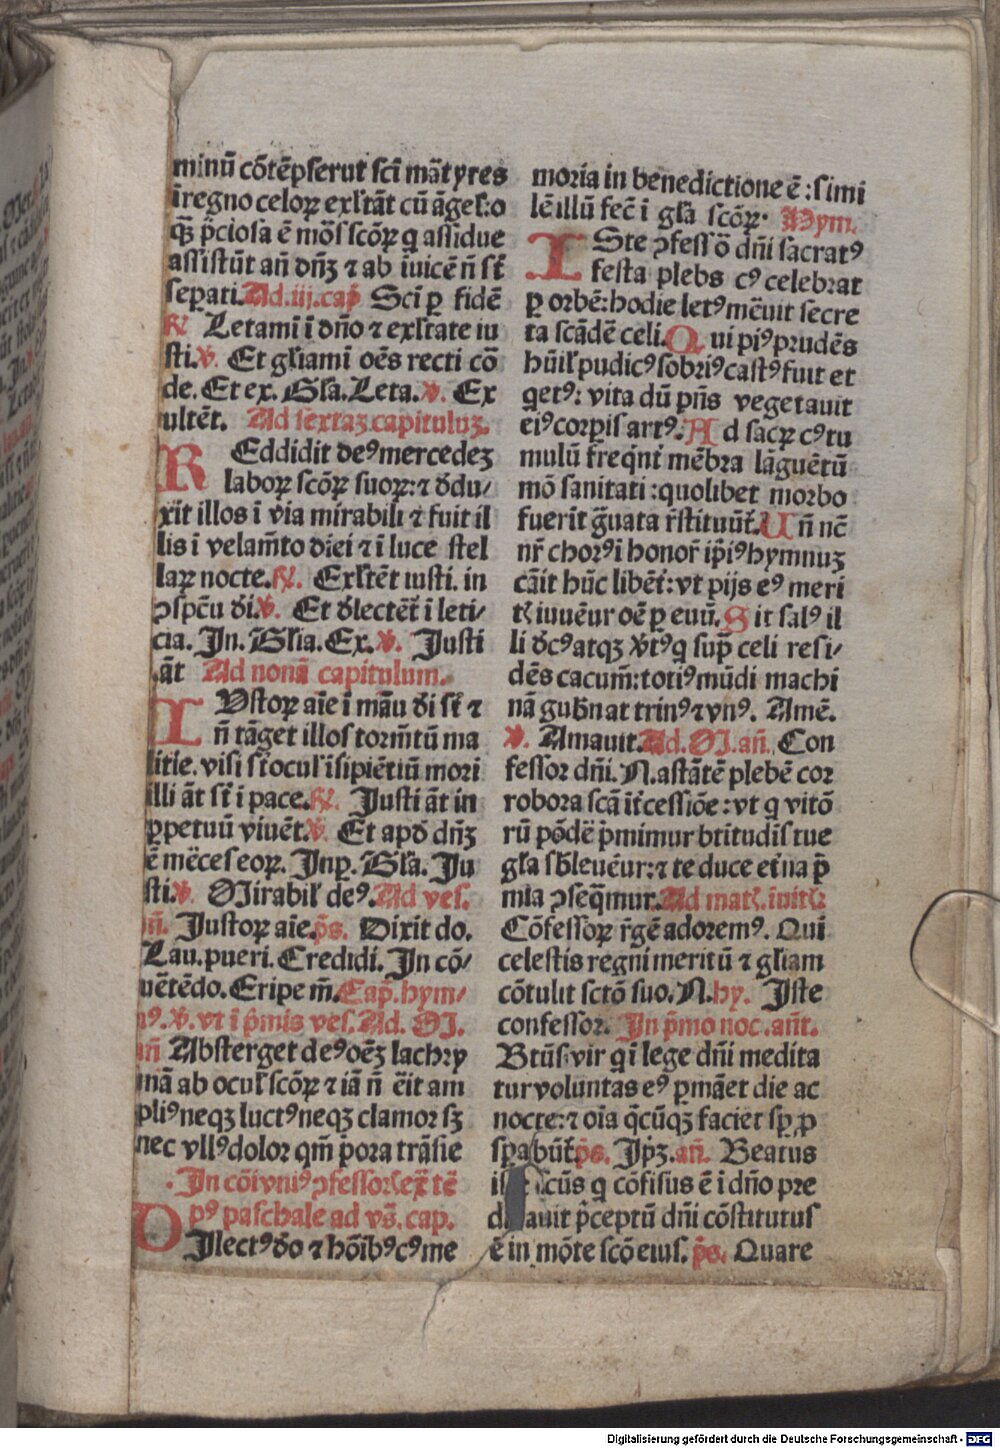 minū cōtēpserut scī mātyres
ī regno celoꝝ exl̄tāt cū āgel̄:o
qꝫ p̄ciosa ē mōs scōꝝ q assidue
assistūt añ dn̄ꝫ ⁊ ab īuicē n̄ st̄
sepati. Ad.iij.cap̄ Scī ꝑ fidē
℟ Letamī ī dn̄o ⁊ exl̄tate iu
sti. ℣. Et gl̄iamī oēs recti cō
de. Et ex. Gl̄a. Leta. ℣. Ex
ultēt. Ad sextaꝫ capituluꝫ.
REddidit deꝰ mercedeꝫ
laboꝝ scōꝝ suoꝝ: ⁊ d̄du/
xit illos ī via mirabili ⁊ fuit il
lis ī velam̄to diei ⁊ ī luce stel
laꝝ nocte. ℟. Exl̄tēt iusti. in
ꝯspc̄u d̄i. ℣. Et d̄lectēt̄ ī leti/
cia. In. Gl̄ia. Ex. ℣. Justi
āt Ad nonā capitulum.
IUstoꝝ aīe ī māu d̄i st̄ ⁊
n̄ tāget illos torm̄tū ma
litie. visi st̄ ocul̄ īsipiētiū mori
illi āt st̄ ī pace. ℟. Justi āt in
ꝑpetuū viuēt. ℣. Et apd̄ dn̄ꝫ
ē mēces eoꝝ. Inꝑ. Gl̄a. Ju
sti. ℣. Mirabil̄ deꝰ. Ad ves.
añ. Justoꝝ aīe. p̄s. Dixit do.
Lau. pueri. Credidi. In cō/
uētēdo. Eripe m̄. Cap̄. hym/
nꝰ. ℣. vt ī p̄mis ves. Ad. M.
añ Absterget deꝰ oēꝫ lachry
mā ab ocul̄ scōꝝ ⁊ iā n̄ ēit am
pliꝰ neqꝫ luctꝰ neqꝫ clamor sꝫ
nec vllꝰ dolor qm̄ p̄ora trāsie
In cōi vniꝰ ꝯfessor̄ ex̄ tē
pꝰ paschale ad vs̄. cap.
DIlectꝰ d̄o ⁊ hōībꝰ cꝰ me
moria in benedictione ē: simi
lē illū fec̄ ī gl̄a scōꝝ. Hym.
ISte ꝯfessō dn̄i sacratꝰ
festa plebs cꝰ celebrat
ꝑ orbē: hodie letꝰ mēuit secre
ta scādē celi. Qui piꝰ prudēs
hūil̄ pudicꝰ sobriꝰ castꝰ fuit et
qetꝰ: vita dū pn̄s vegetauit
eiꝰ corpis artꝰ. Ad sacꝝ cꝰ tu
mulū freqn̄t mēbra lāguētū
mō sanitati: quolibet morbo
fuerit ḡuata r̄stituūt̄. Un̄ nc̄
nr̄ chorꝰ ī honor̄ ip̄iꝰ hymnuꝫ
cāit hūc libēt̄: vt pijs eꝰ meri
tꝭ iuuēur oē ꝑ euū. Sit salꝰ il
li d̄cꝰ atqꝫ v̄tꝰ q sup̄ celi resi/
dēs cacum̄: totiꝰ mūdi machi
nā gub̄nat trinꝰ ⁊ vnꝰ. Amē.
℣. Amauit. Ad. M. añ. Con
fessor dn̄i. N. astātē plebē cor
robora scā it̄cessiōe: vt q vitō
rū pōdē p̄mimur b̄titudīs tue
gl̄a sb̄leuēur: ⁊ te duce et̄na p̄
mia ꝯseq̄mur. Ad matꝭ. īuitꝭ
Cōfessoꝝ r̄gē adoremꝰ. Qui
celestis regni meritū ⁊ gl̄iam
cōtulit sctō suo. N. hy. Iste
confessor. In p̄mo noc. añt.
Btūs vir q ī lege dn̄i medita
tur voluntas eꝰ ꝑmāet die ac
nocte: ⁊ oīa q̄cūqꝫ faciet sꝑ ꝓ
spabūt̄. p̄s. Ip̄ꝫ. añ. Beatus
cūs q cōfisus ē ī dn̄o pre
auit p̄ceptū dn̄i cōstitutus
ē in mōte scō eius. p̄s. Quare
Digitalisierung gefördert durch die Deutsche Forschungsgemeinschaft - DFG